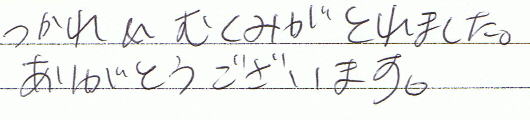 つかれ や むくみが とれました。
ありがとうございます。